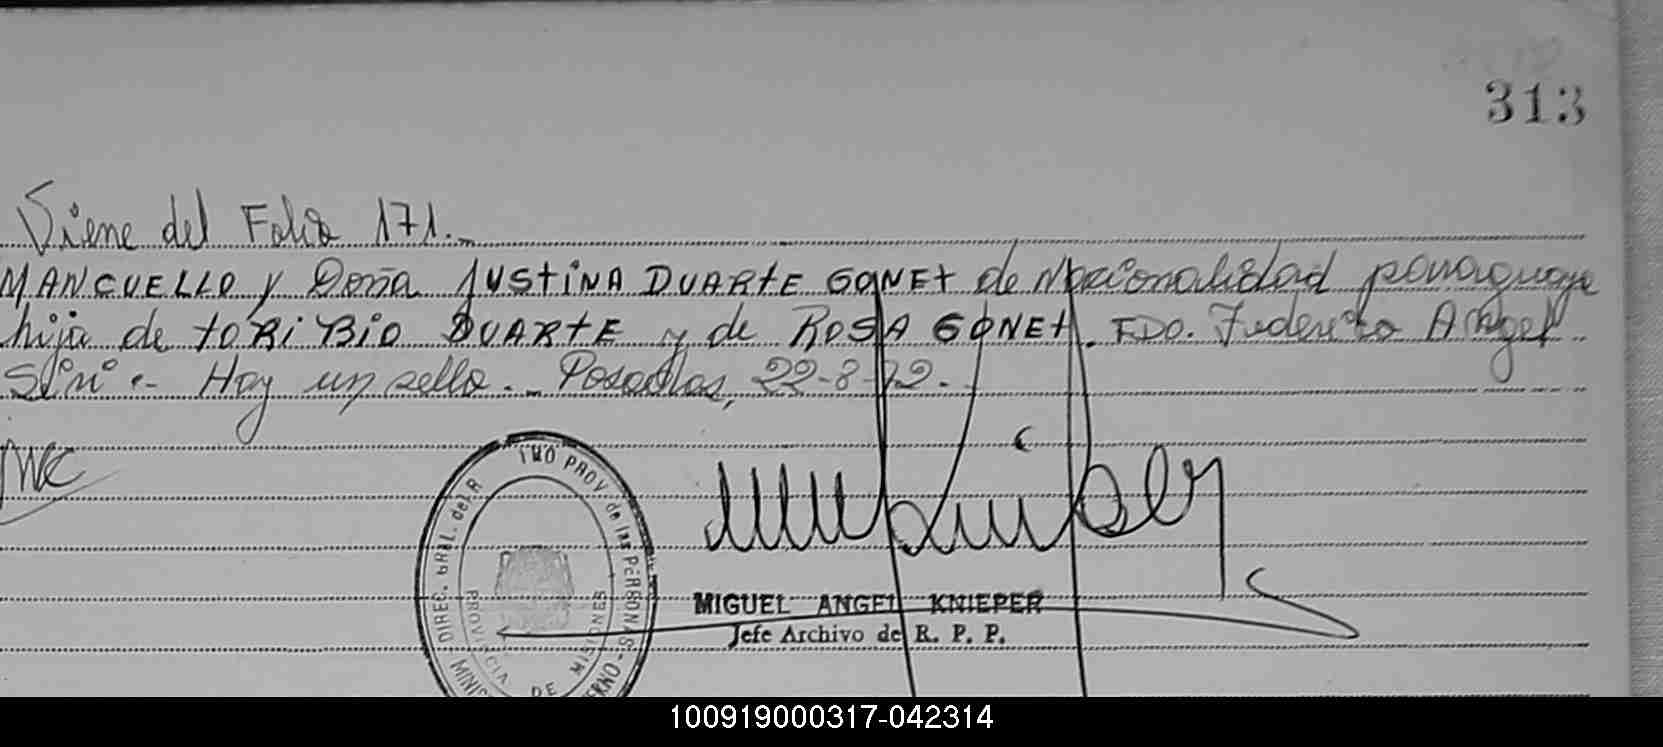 313
Viene del Folio 171.-
MANCUELLO y Doña JUSTINA DUARTE GONET de Nacionalidad paraguaya
hija de TORIBIO DUARTE y de ROSA GONET. FDO. Federico Angel
Sini.- Hay un sello.- Posadas, 22-8-72.-
MIGUEL ANGEL KNIEPER
Jefe Archivo de R. P. P.
DIREC. GRAL. del R
PROV. de las PERSONAS-
PROVINCIA DE MISIONES
100919000317-042314